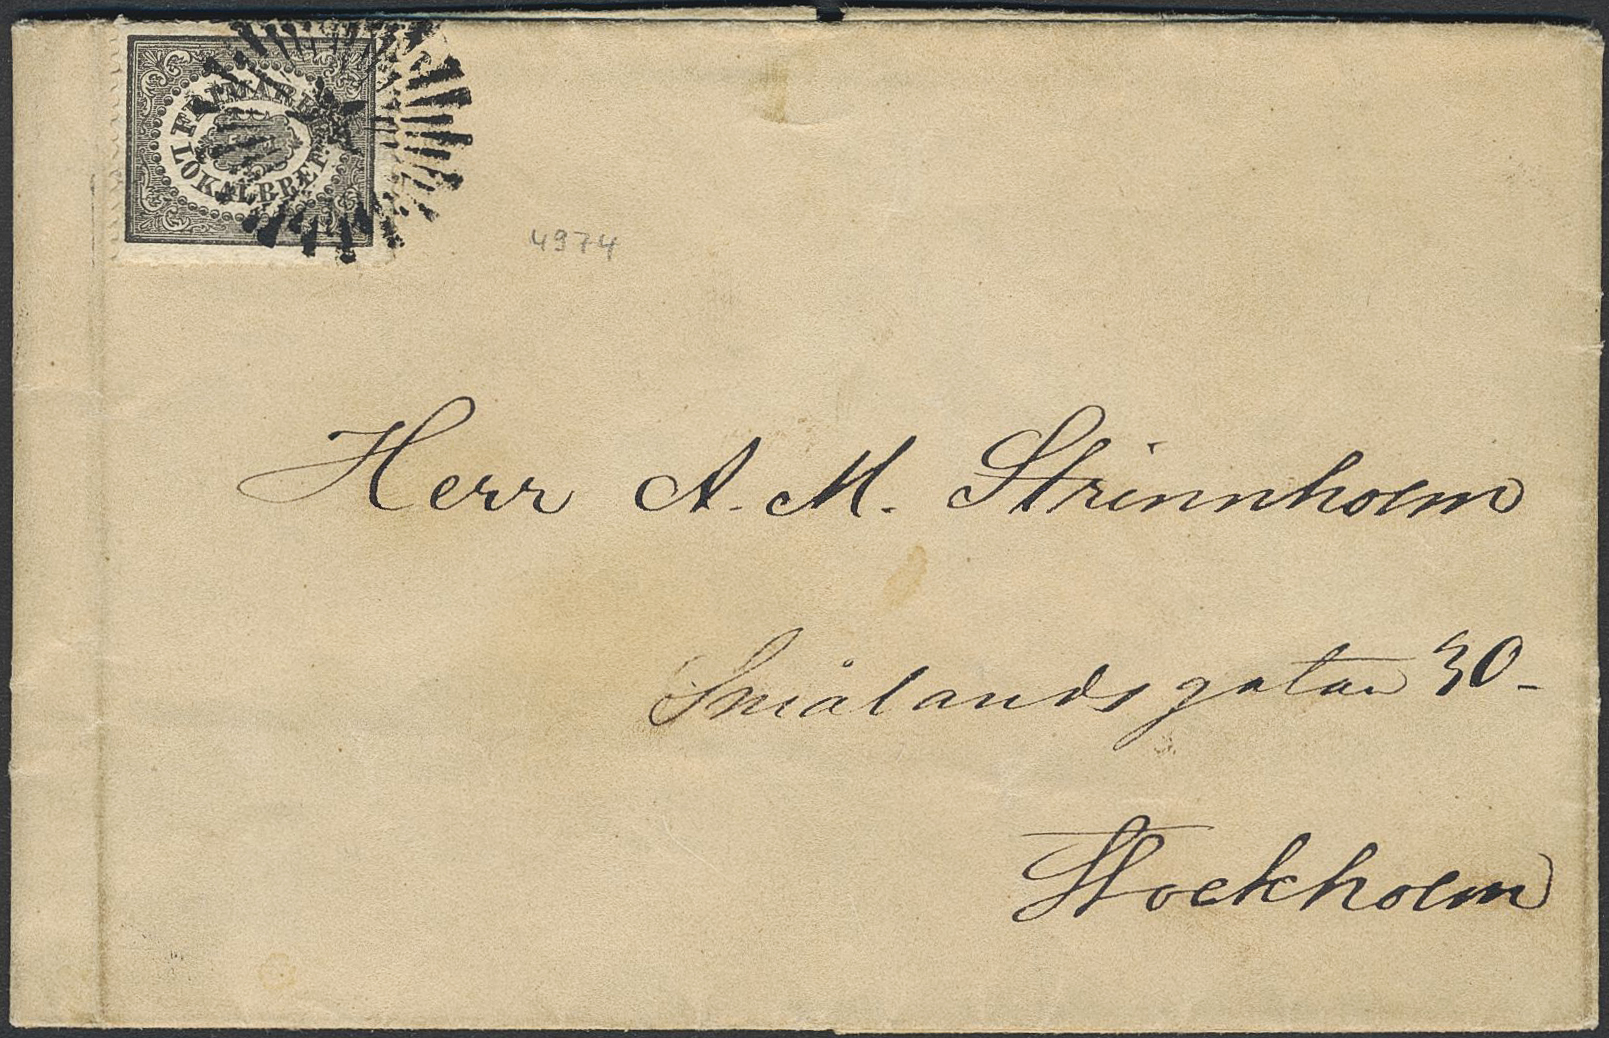 FRIMÄRKE
LOKALBREF
4974
Herr A. M. Strinnholm
Smålandsgatan 30-
Stockholm